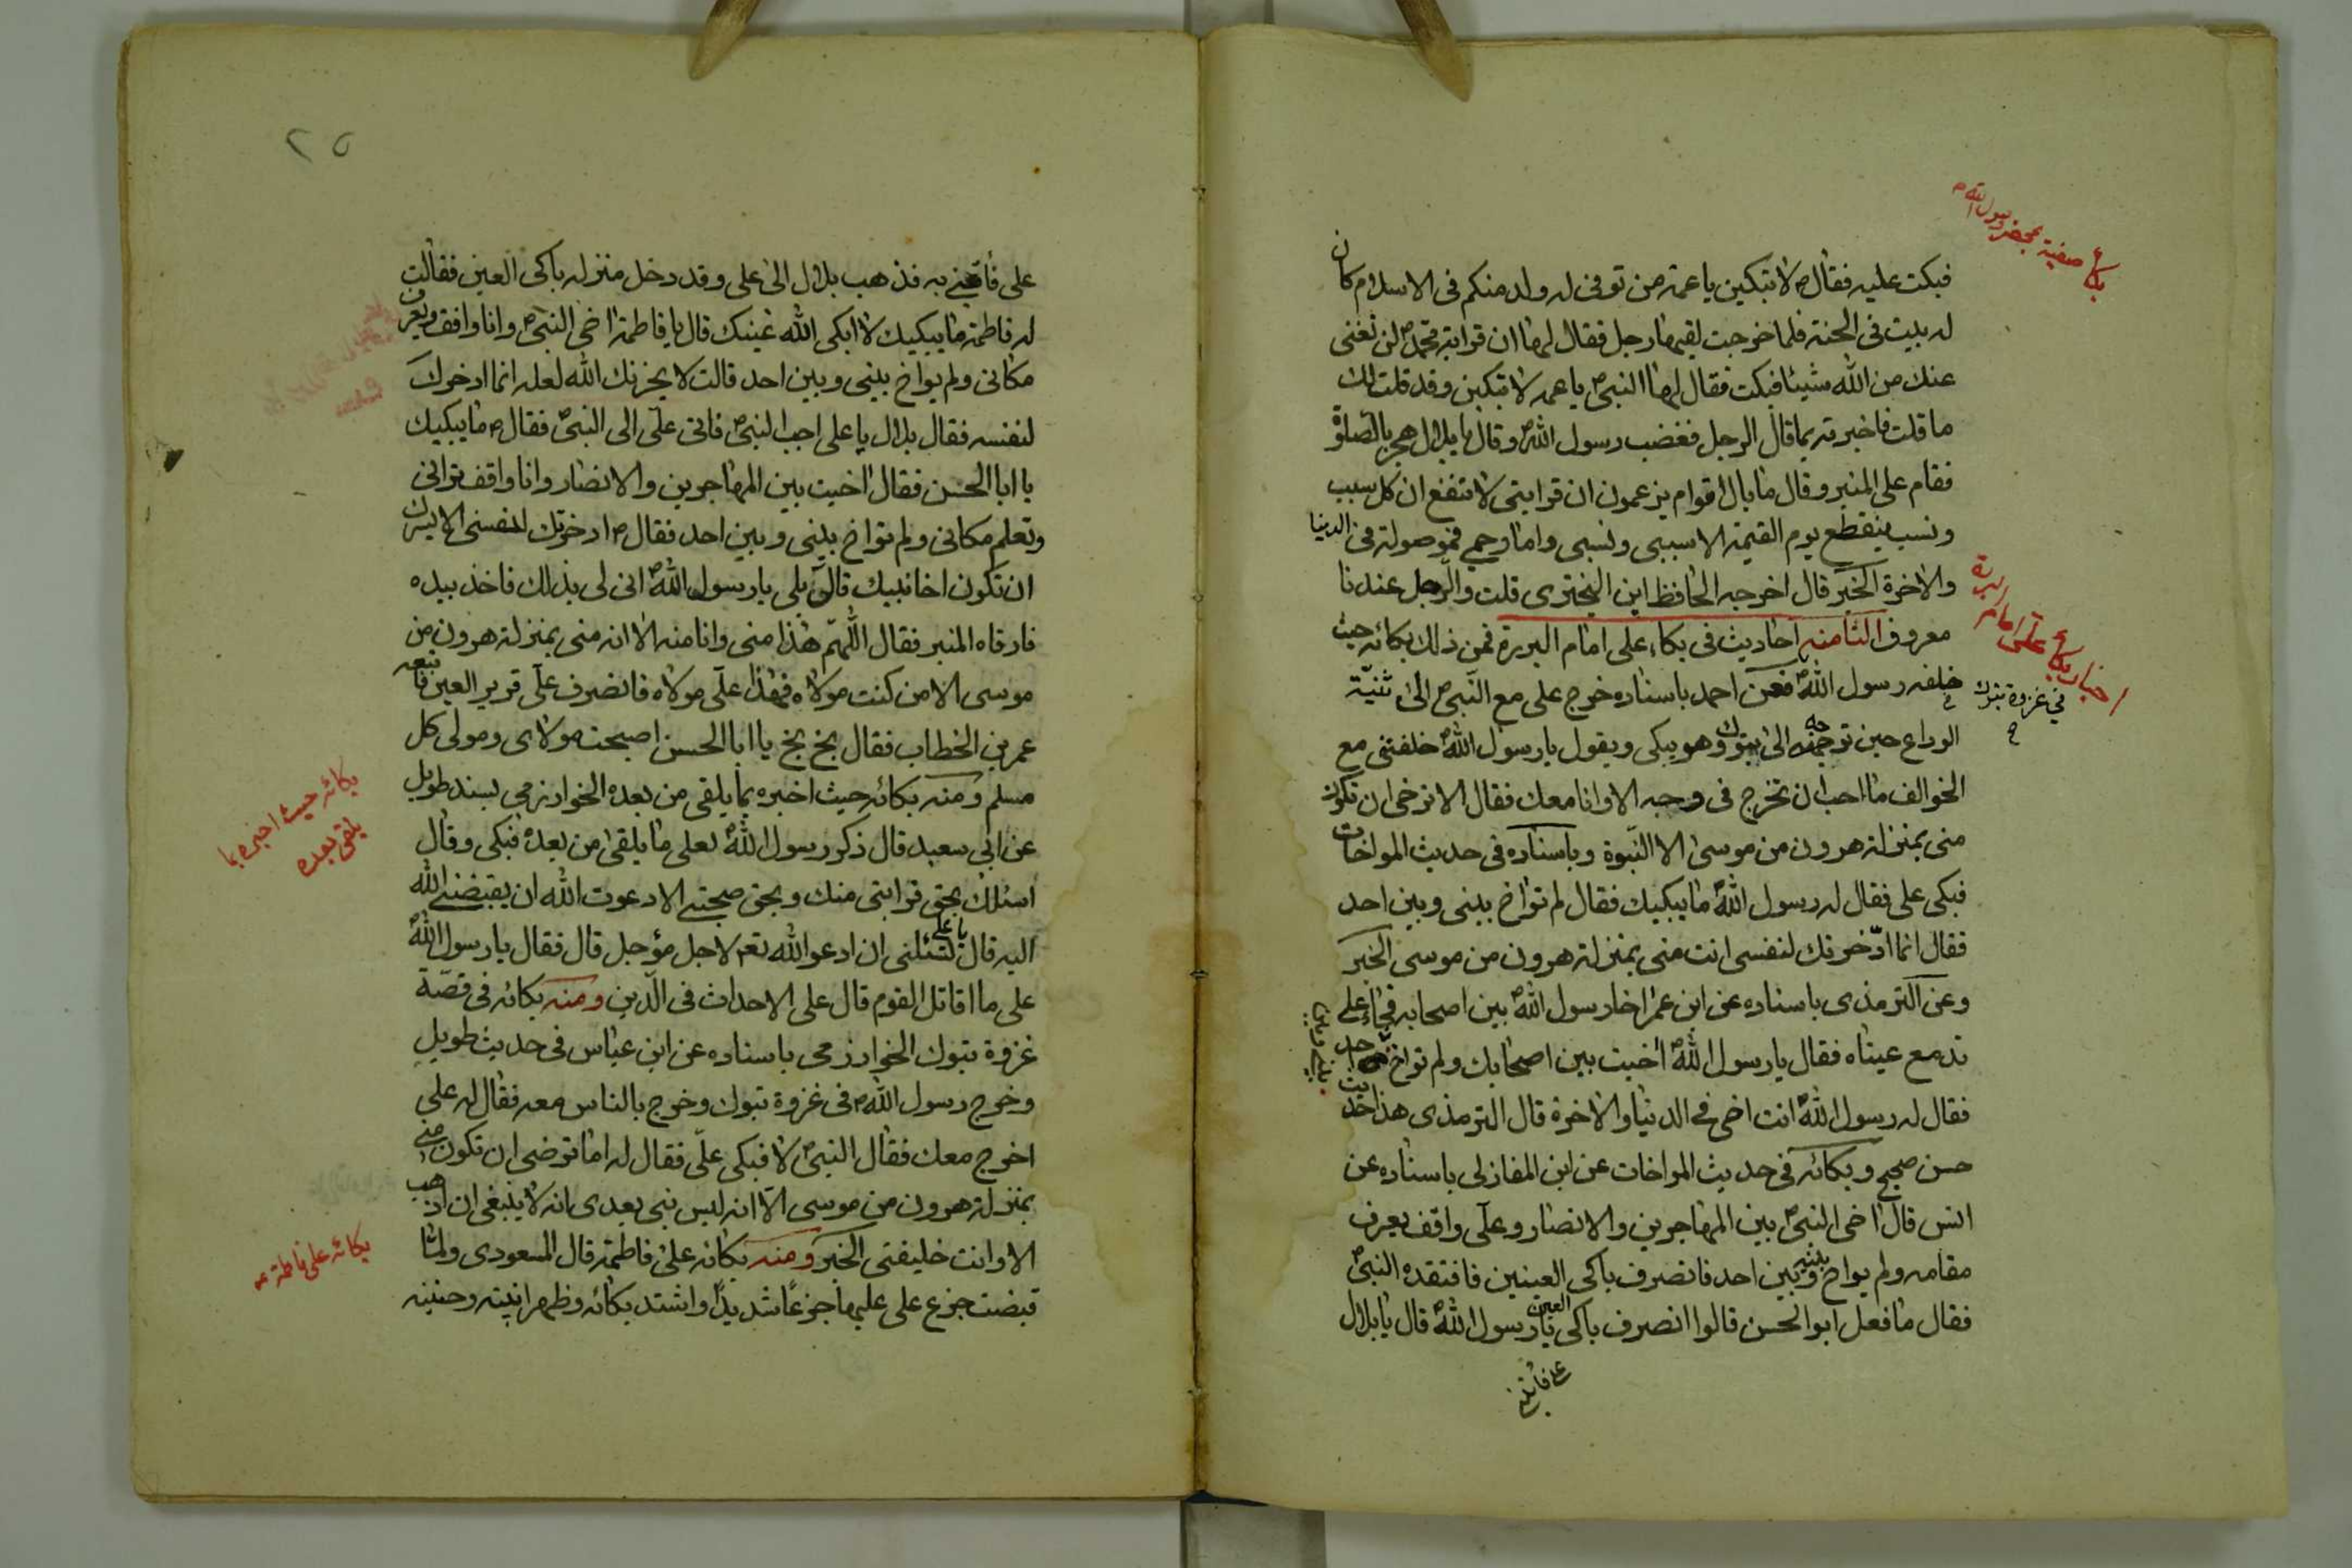 بكاء صفية بمحضر رسول الله ص
فبكت عليه فقال ص لا تبكين يا عمة من توفى له ولد منكم فى الاسلام كان
له بيت فى الجنة فلما خرجت لقيها رجل فقال لها ان قرابة محمد ص لن تغنى
عنك من الله شيئا فبكت فقال لها النبى ص يا عمه لا تبكين وقد قلت لك
ما قلت فاخبرته بما قال الرجل فغضب رسول الله ص وقال يا بلال هجر بالصلوة
فقام على المنبر وقال ما بال اقوام يزعمون ان قرابتى لا تنفع ان كل سبب
ونسب ينقطع يوم القيمة الا سببى ونسبى واما رحمى فموصولة فى الدنيا
والاخرة الخبر قال اخرجه الحافظ ابن البخترى قلت والرجل عندنا
معروف الثامنه احاديث فى بكاء على امام البررة فمن ذلك بكائه حيث
اخبار بكاء على امام البررة
خلفه رسول الله ص فعن احمد باسناده خرج على مع النبى ص الى ثنية
فى غزوة تبوك
الوداع حين توجهه الى تبوك وهو يبكى ويقول يا رسول الله ص خلفتنى مع
الخوالف ما احب ان تخرج فى وجه الا وانا معك فقال الا ترضى ان تكون
منى بمنزلة هرون من موسى الا النبوة وباسناده فى حديث المواخات
فبكى على فقال له رسول الله ص ما يبكيك فقال لم تواخ بينى وبين احد
فقال انما ادخرتك لنفسى انت منى بمنزلة هرون من موسى الخبر
وعن الترمذى باسناده عن ابن عمر اخا رسول الله ص بين اصحابه فجاء على
تدمع عيناه فقال يا رسول الله ص اخيت بين اصحابك ولم تواخ احد
بينى وبين
فقال له رسول الله ص انت اخى فى الدنيا والاخرة قال الترمذى هذا حديث
حسن صحيح وبكائه فى حديث المواخات عن ابن المغازلى باسناده عن
انس قال اخى النبى ص بين المهاجرين والانصار وعلى واقف يعرف
مقامه ولم يواخ بينه وبين احد فانصرف باكى العينين فافتقده النبى ص
فقال ما فعل ابو الحسن قالوا انصرف باكى العين يا رسول الله ص قال يا بلال
على فأتنى
٢٥
على فأتنى به فذهب بلال الى على وقد دخل منزله باكى العين فقالت
له فاطمة ما يبكيك لا ابكى الله عينك قال يا فاطمة اخى النبى ص وانا واقف ويعرف
مكانى ولم يواخ بينى وبين احد قالت لا يحزنك الله لعله انما ادخرك
لنفسه فقال بلال يا على اجب النبى ص فاتى على الى النبى ص فقال ص ما يبكيك
يا ابا الحسن فقال اخيت بين المهاجرين والانصار وانا واقف ترانى
وتعلم مكانى ولم تواخ بينى وبين احد فقال ص ادخرتك لنفسى الا يسرك
ان تكون اخا نبيك قال بلى يا رسول الله ص انى لى بذلك فاخذ بيده
فارقاه المنبر فقال اللهم هذا منى وانا منه الا انه منى بمنزلة هرون من
موسى الا من كنت مولاه فهذا على مولاه فانصرف على قرير العين فاتبعه
عمر بن الخطاب فقال بخ بخ يا ابا الحسن اصبحت مولاى ومولى كل
مسلم ومنه بكائه حيث اخبره بما يلقى من بعده الخوارزمى بسند طويل
بكائه حيث اخبره بما
يلقى بعده
عن ابى سعيد قال ذكر رسول الله ص لعلى ما يلقى من بعده فبكى وقال
اسئلك بحق قرابتى منك وبحق صحبتى الا دعوت الله ان يقبضنى الله
اليه قال يا على تسئلنى ان ادعو الله تعه لاجل مؤجل قال فقال يا رسول الله ص
على ما اقاتل القوم قال على الاحداث فى الدين ومنه بكائه فى قصة
غزوة تبوك الخوارزمى باسناده عن ابن عباس فى حديث طويل
وخرج رسول الله ص فى غزوة تبوك وخرج بالناس معه فقال له على
اخرج معك فقال النبى ص لا فبكى على فقال له اما ترضى ان تكون منى
بمنزلة هرون من موسى الا انه ليس نبى بعدى انه لا ينبغى ان اذهب
الا وانت خليفتى الخبر ومنه بكائه على فاطمة قال المسعودى ولما
بكائه على فاطمة ع
قبضت جزع على عليها جزعا شديدا واشتد بكائه وظهر انينه وحنينه